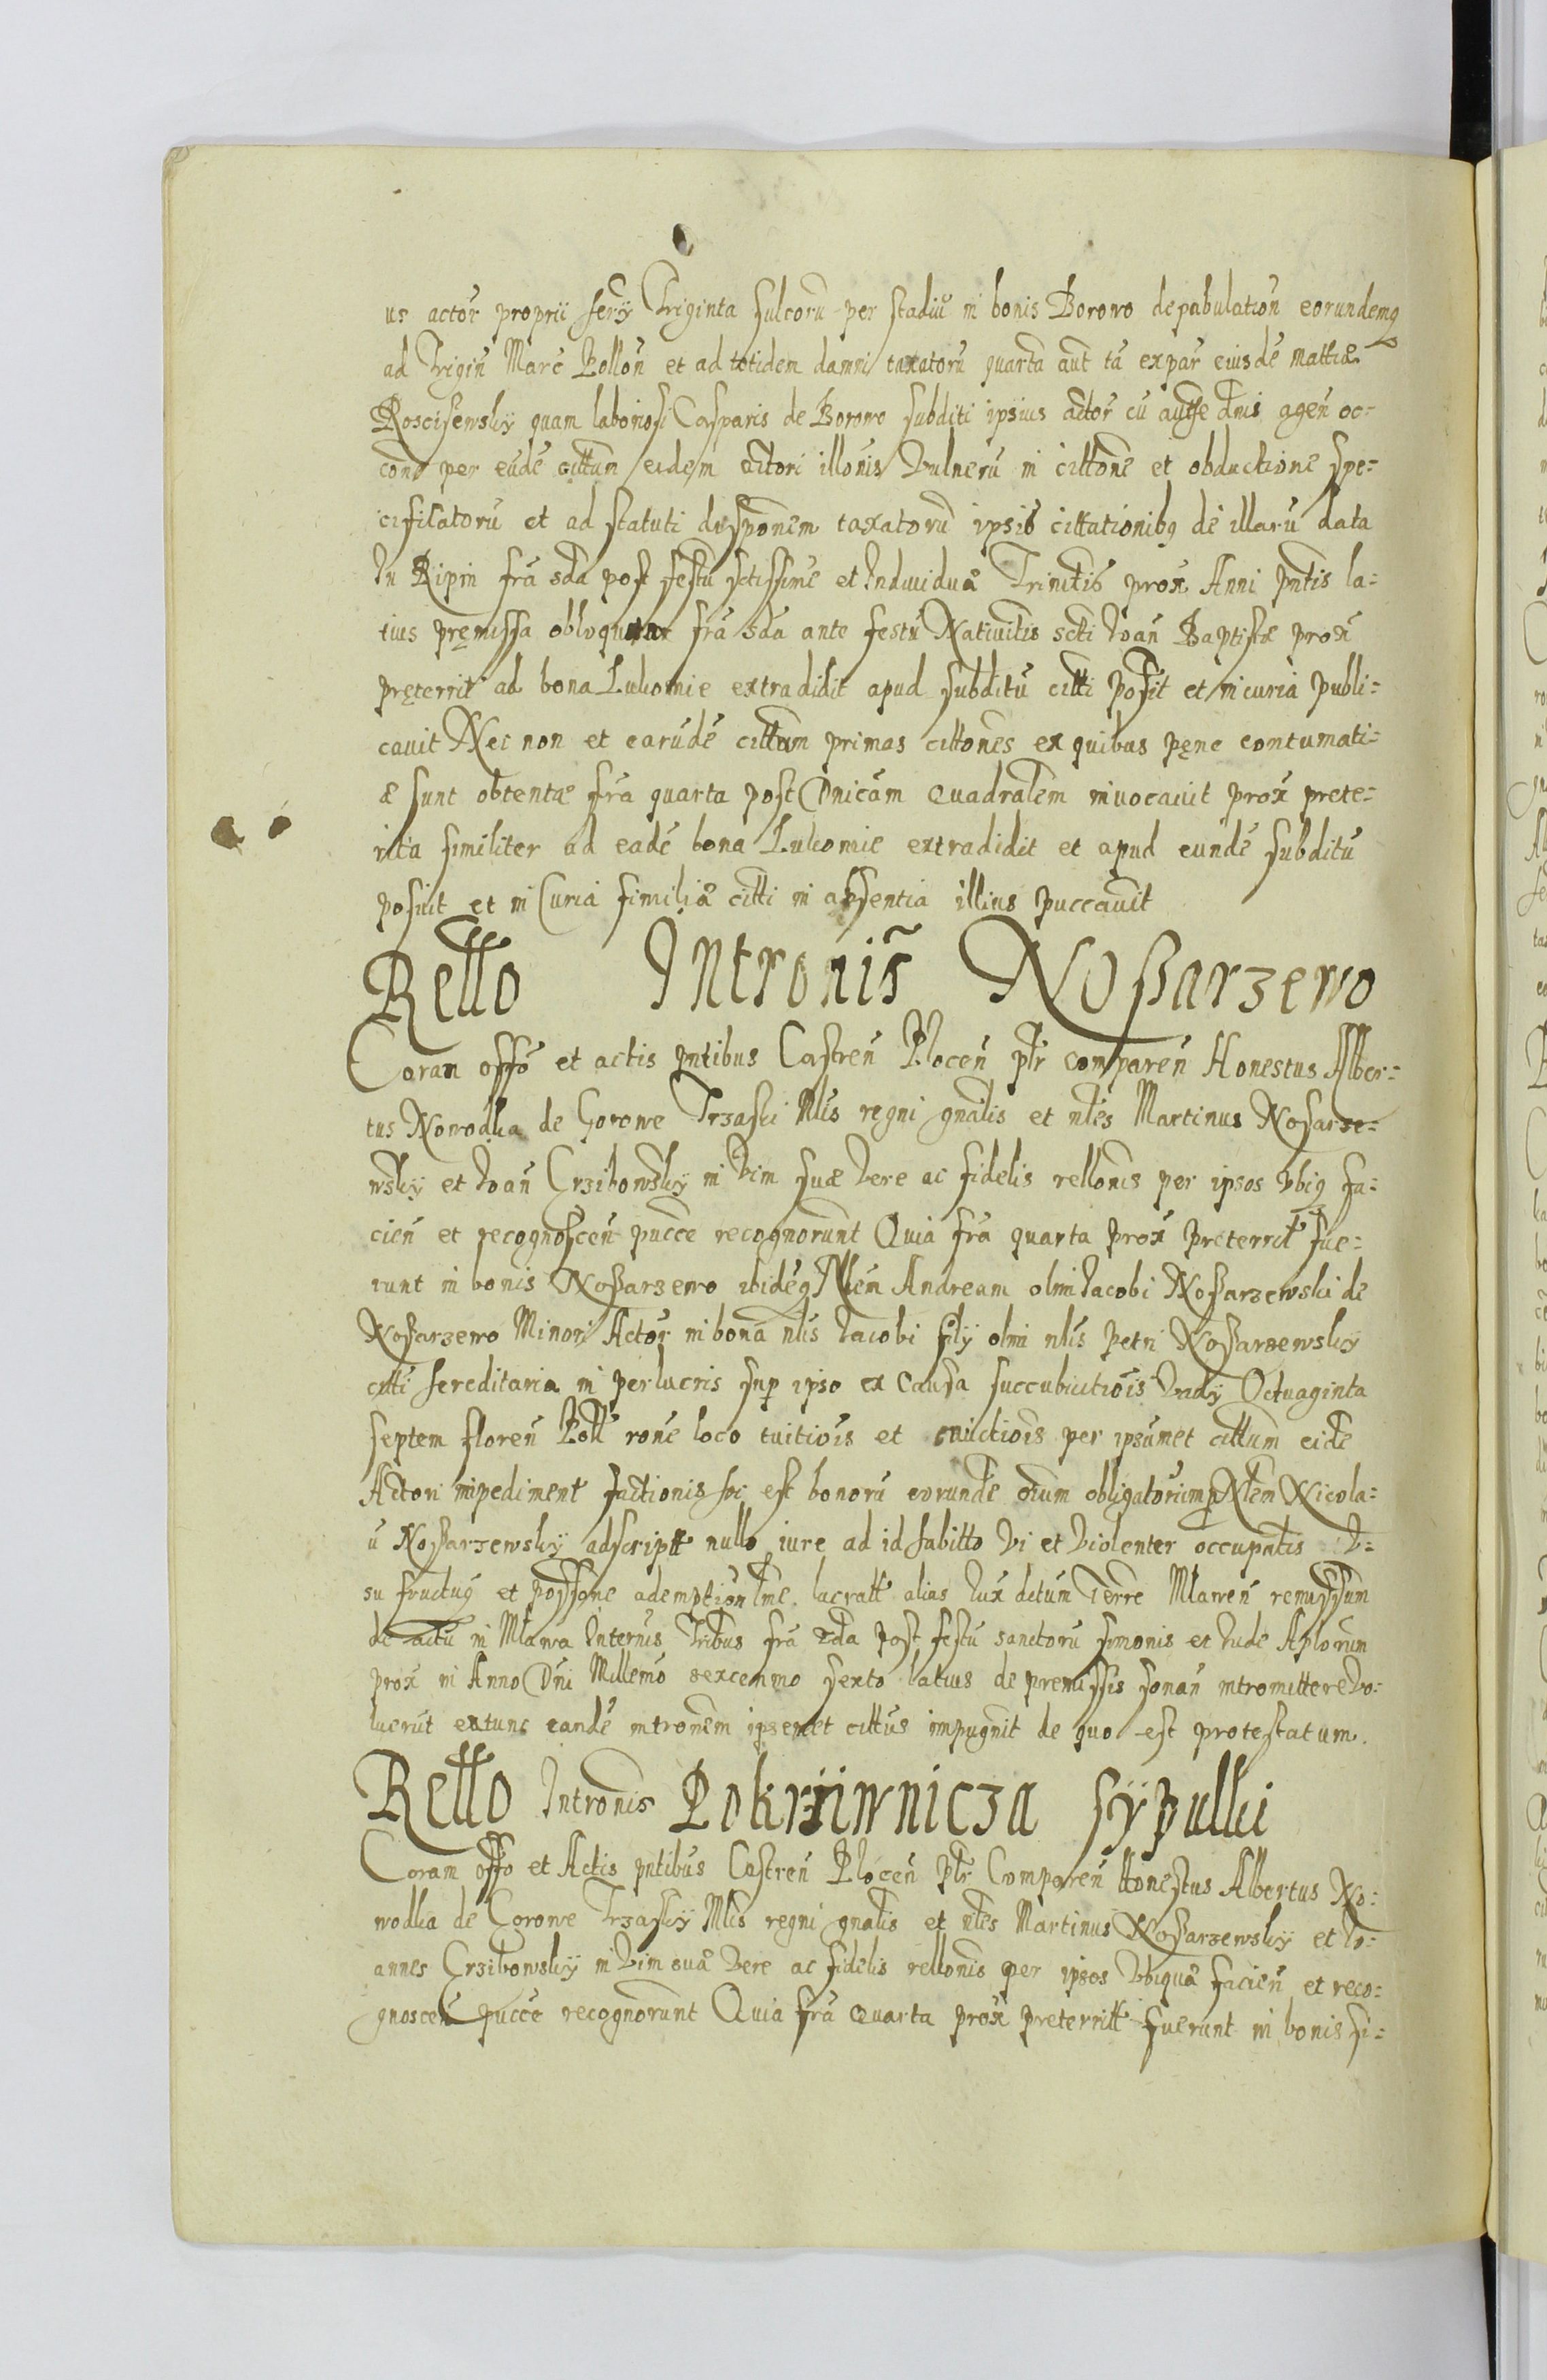 us actor̃ proprii feny Triginta sulcorũ per stadiũ in bonis Borowo depabulatioñ eorundemq
ad Trigiñ Marc̃ Polloñ et ad totidem damni taxatorũ quarta aut̃ tã ex par̃ eiusdẽ Matthiæ
Roscisewsky quam laboriosi Casparis de Borowo subditi ipsius actor̃ cũ autħe dñis ageñ oc-
cone per eũdẽ cittum eidem actori illonis Vulnerũ in cittone et obductione spe-
cificatorũ et ad statuti dispõnem taxatorũ ipsis cittationibq de illarũ data
In Ripin frã sda post festũ sctissime et Indiuiduæ Trinitis prox Anni pntis la-
tius premissa obloquntur frã sda ante festũ Natiuitis scti Ioañ Baptistæ prox
preterrit ad bona Lukomie extradidit apud subditũ citti Posit et in curia publi-
cauit Nec non et earũdẽ cittum primas cittones ex quibus pęne contumati-
æ sunt obtentæ frã quarta post Dnicam Quadralem inuocauit prox prete-
rita similiter ad eadẽ bona Lukomie extradidit et apud eundẽ subditũ
posuit et in Curia similiæ citti in absentia illius puccauit
Rello Intronis̃ Noßarzewo
Coram offõ et actis pntibus Castreñ Ploceñ ptr̃ compareñ Honestus Alber-
tus Nowodka de Gorowe Trzaski Mlis regni gnalis et nles Martinus Nosarze-
wsky et Ioañ Grzibowsky in Vim suæ Vere ac fidelis rellonis per ipsos Vbiq fa-
cieñ et recognosceñ pucce recognorunt Quia frã quarta prox preterrit fue-
runt in bonis Noßarzewo ibidẽq Nleñ Andream olim Iacobi Noßarzewski de
Noßarzewo Minori Actor̃ in bona nlis Iacobi fily olim nlis Petri Noßarzewsky
citti hereditaria in perlucris sup ipso ex Causa succubiutiois Vady Octuaginta
septem floreñ Poll rone loco tuitiois et euictiois per ipsumet cittum eidẽ
Actori impediment factionis hoc est bonorũ eorundẽ oĩum obligatorium p Nlem Nicola-
ũ Noßarzewsky adscriptt nullo iure ad id habitto Vi et Violenter occupatis V-
su fructuq et possone ademption lme. lacratt alias lux ditum Terre Mlaweñ remissum
de actũ in Mlawa Internis Tribus frã 2da Post festũ sanctorũ Simonis et Iude Aplorum
prox in Anno Dñi Millemo sexcenmo sexto latius de premissis sonañ intromittere Vo-
luerũt extunc eandẽ intronem ipsemet cittus impugnit de quo est protestatum.
Rello Intronis Pokrziwnicza sÿpulki
Coram offo et Actis pntibus Castreñ Ploceñ ptr̃ Compareñ Honestus Albertus No-
wodka de Gorowe Trzasky Mlis regni gnalis et nles Martinus Noßarzewsky et Io-
annes Grzibowsky in Vim suæ Vere ac fidelis rellonis per ipsos Vbiquæ facieñ et reco-
gnosceñ pucce recognorunt Quia frã Quarta prox preterritt fuerunt in bonis Si-